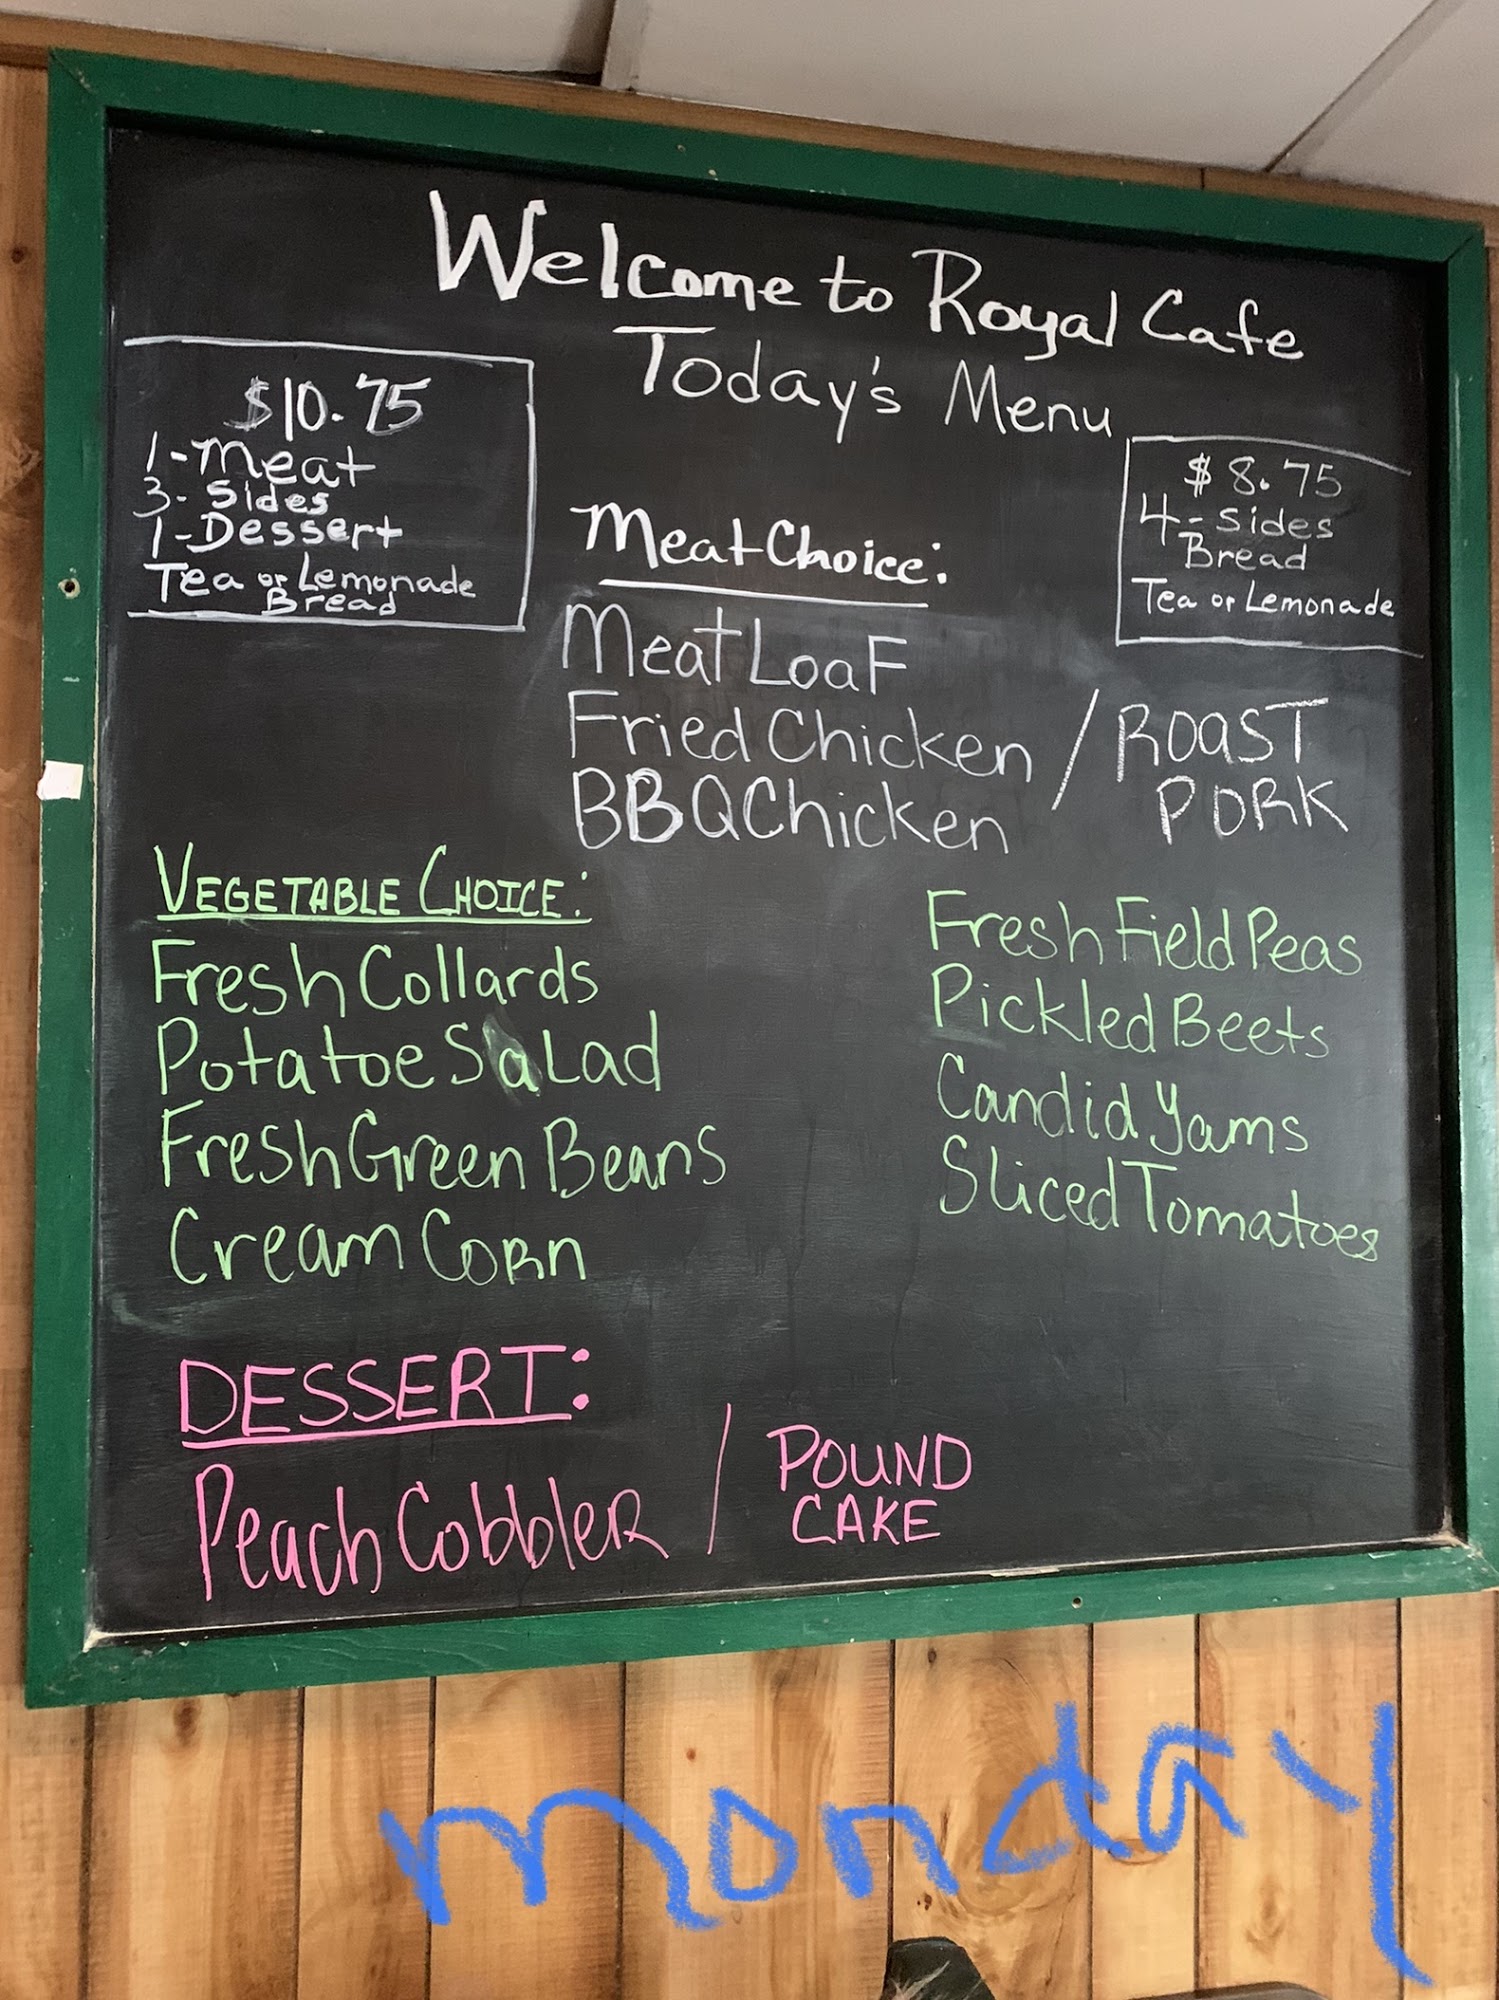 Welcome to Royal Cafe
Today's Menu
$10.75
1-Meat
3-Sides
1-Dessert
Tea or Lemonade
Bread
$8.75
4-Sides
Bread
Tea or Lemonade
Meat Choice:
Meat Loaf
Fried Chicken / ROAST
BBQ Chicken PORK
VEGETABLE CHOICE:
Fresh Collards
Potatoe Salad
Fresh Green Beans
Cream Corn
Fresh Field Peas
Pickled Beets
Candid Yams
Sliced Tomatoes
DESSERT:
Peach Cobbler / POUND
CAKE
monday